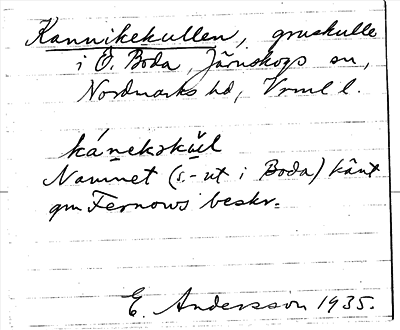 Kannikekullen, gruskulle
i Ö. Boda, Järnskogs sn,
Nordmarks hd, Vrml l.
kánekskŭl
Namnet (s.-ut i Boda) känt
gm Fernows beskr.
E. Andersson 1935.